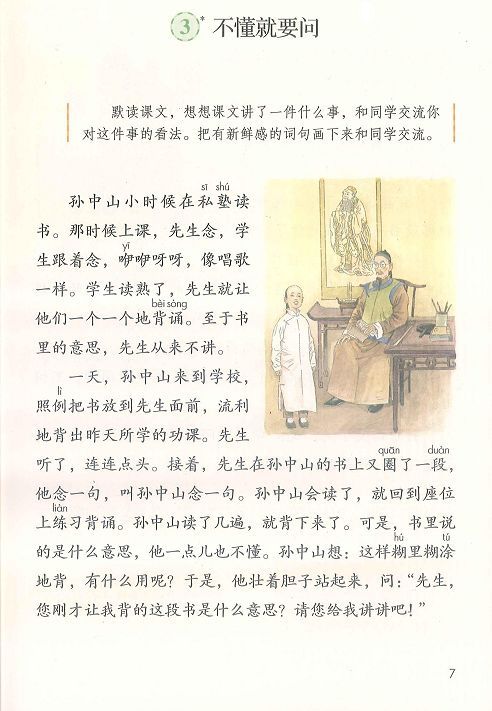 3* 不懂就要问
默读课文，想想课文讲了一件什么事，和同学交流你
对这件事的看法。把有新鲜感的词句画下来和同学交流。
sī shú
孙中山小时候在私塾读
书。那时候上课，先生念，学
yī
生跟着念，咿咿呀呀，像唱歌
一样。学生读熟了，先生就让
bèi sòng
他们一个一个地背诵。至于书
里的意思，先生从来不讲。
一天，孙中山来到学校，
lì
照例把书放到先生面前，流利
地背出昨天所学的功课。先生
听了，连连点头。接着，先生在孙中山的书上又圈了一段，
quān duàn
他念一句，叫孙中山念一句。孙中山会读了，就回到座位
liàn
上练习背诵。孙中山读了几遍，就背下来了。可是，书里说
的是什么意思，他一点儿也不懂。孙中山想：这样糊里糊涂
hú tú
地背，有什么用呢？于是，他壮着胆子站起来，问：“先生，
您刚才让我背的这段书是什么意思？请您给我讲讲吧！”
7